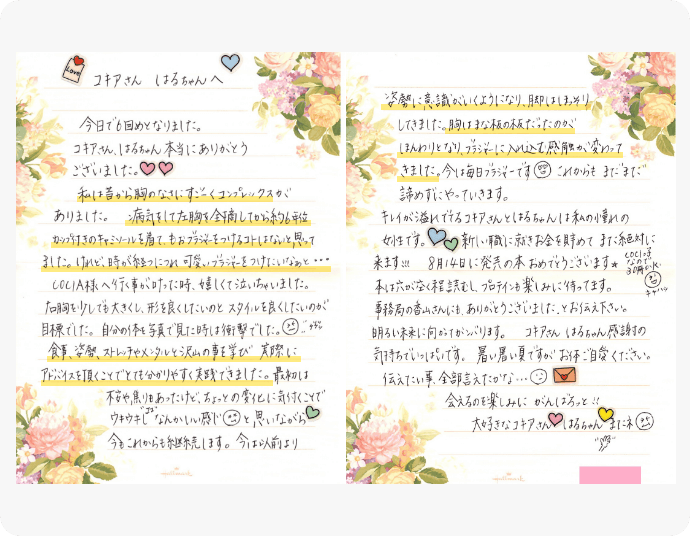 Love
コキアさん はるちゃんへ
今日で6回めとなりました。
コキアさん、はるちゃん 本当にありがとう
ございました。
私は昔から胸のなさにすごくコンプレックスが
ありました。 病気をして左胸を全摘してから約6年位
カップ付きのキャミソールを着て、もおブラジャーをつけるコトはないと思って
ました。けれど、時が経つにつれ可愛いブラジャーをつけたいなぁと・・・
COCIA様へ行く事ができた時、嬉しくて泣いちゃいました。
右胸を少しでも大きくし、形を良くしたいのと スタイルを良くしたいのが
目標でした。 自分の体を写真で見た時は衝撃でした。
食事、姿勢、ストレッチやメンタルと沢山の事を学び 実際に
アドバイスを頂くことでとても分かりやすく実践できました。最初は
不安や、焦りもあったけど、ちょっとの変化に気付くことで
ウキウキし なんかいい感じ と思いながら
今もこれからも継続します。 今は以前より
姿勢に意識がいくようになり、脚はほっそり
してきました。胸はまな板の板だったのが
ほんわりとなり、ブラジャーに入れ込む感触が変わって
きました。今は毎日ブラジャーです これからも まだまだ
諦めずにやっていきます。
キレイが溢れでてるコキアさんとはるちゃんは 私の憧れの
女性です。 新しい職に就きお金を貯めて また絶対に
来ます!!! 8月14日に発売の本 おめでとうございます★
本は穴があく程読むし、プロテインも楽しみに待ってます。
事務局の香山さんにも、ありがとうございました、とお伝え下さい。
明るい未来に向かってがんばります。 コキアさん はるちゃん感謝の
気持ちでいっぱいです。 暑い暑い夏ですが お体ご自愛ください。
伝えたい事、全部言えたかな…
会えるのを楽しみに がんばるっと!!
大好きなコキアさん はるちゃん またネ
Hallmark